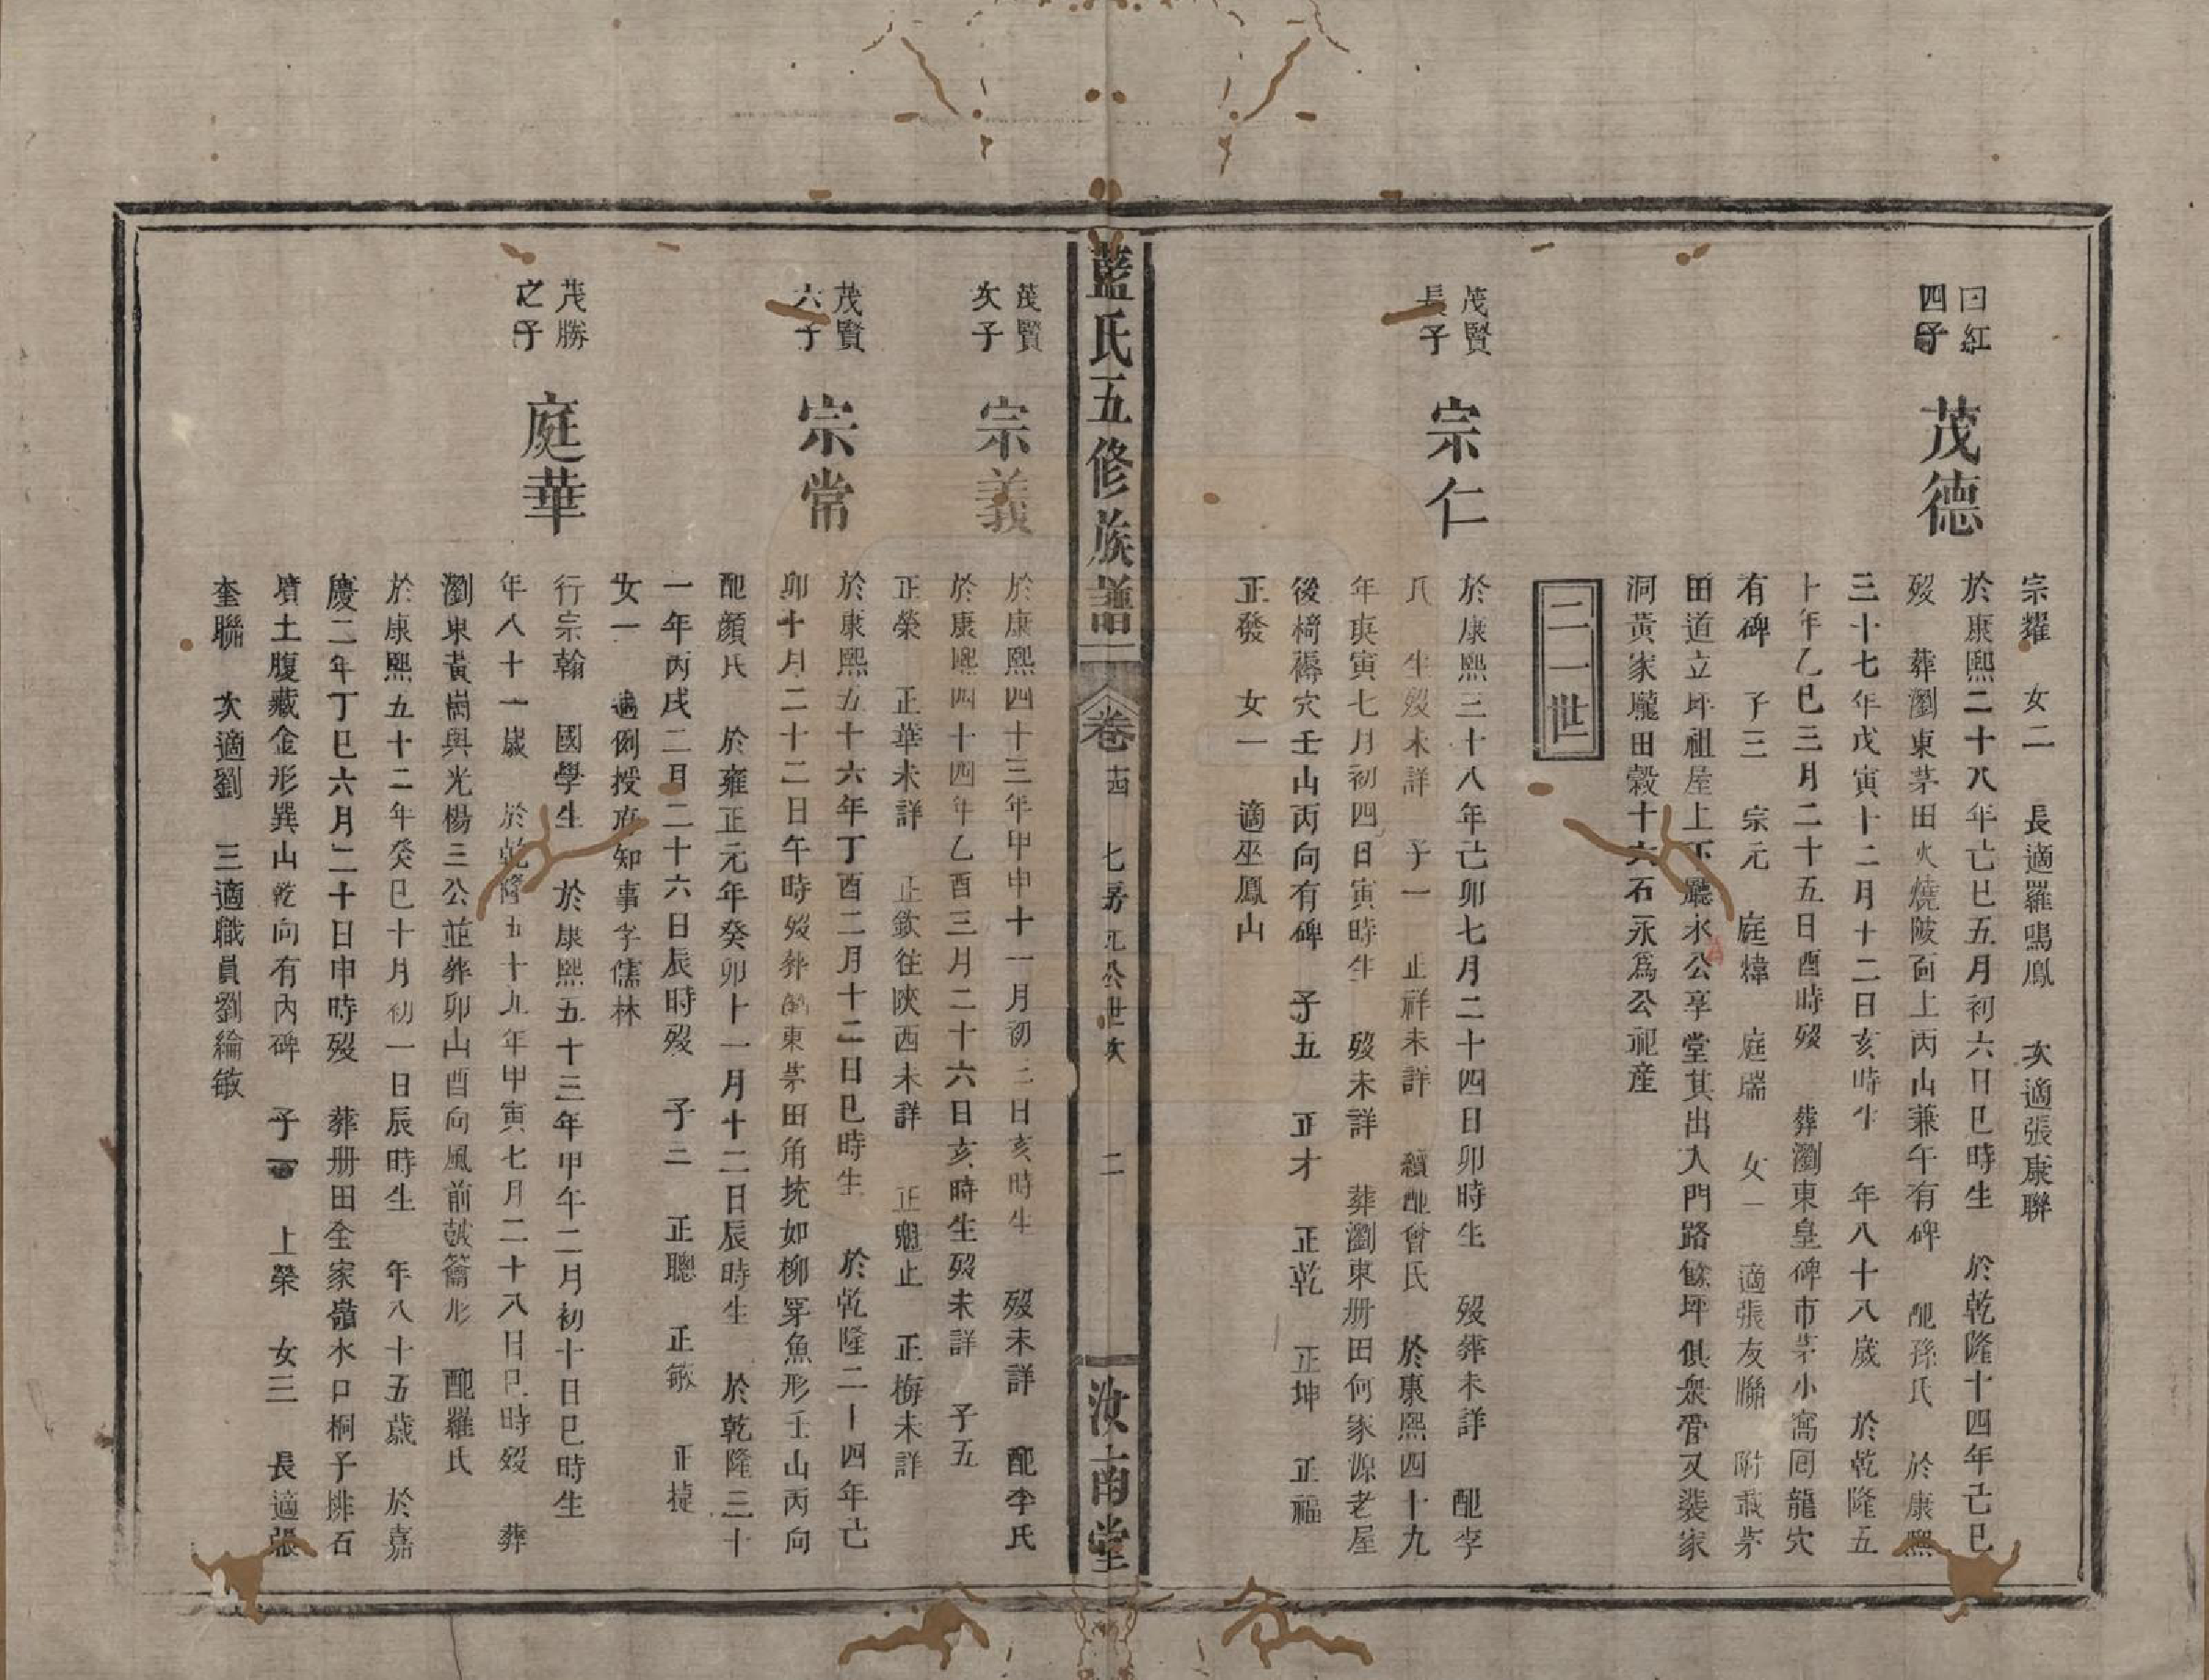 宗耀　女二　長適羅鳴鳳　次適張康聯
曰紅
四子
茂德
於康熙二十八年己巳五月初六日巳時生　於乾隆十四年己巳
歿　葬瀏東茅田火燒陂面上丙山兼午有碑　配孫氏　於康熙
三十七年戊寅十二月十二日亥時生　年八十八歲　於乾隆五
十年乙巳三月二十五日酉時歿　葬瀏東皇碑市茅小窩回龍穴
有碑　子三　宗元　庭煒　庭瑞　女一　適張友聯　附載茅
田道立坪祖屋上下廳永公享堂其出入門路餘坪俱衆管又裴家
洞黃家隴田穀十六石永為公祀産
二一世
茂賢
長子
宗仁
於康熙三十八年己卯七月二十四日卯時生　歿葬未詳　配李
氏　生歿未詳　子一　正祥未詳　續配曾氏　於康熙四十九
年庚寅七月初四日寅時生　歿未詳　葬瀏東册田何家源老屋
後椅褥穴壬山丙向有碑　子五　正才　正乾　正坤　正福
正發　女一　適巫鳳山
藍氏五修族譜　卷十四　七房元公世次　二　汝南堂
茂賢
次子
宗義
於康熙四十三年甲申十一月初二日亥時生　歿未詳　配李氏
於康熙四十四年乙酉三月二十六日亥時生歿未詳　子五
正榮　正華未詳　正欽往陝西未詳　正魁止　正梅未詳
茂賢
六子
宗常
於康熙五十六年丁酉二月十二日巳時生　於乾隆二十四年己
卯十月二十二日午時歿葬瀏東茅田角坑如柳穿魚形壬山丙向
配顔氏　於雍正元年癸卯十一月十二日辰時生　於乾隆三十
一年丙戌二月二十六日辰時歿　子三　正聰　正敏　正捷
女一
茂勝
之子
庭華
遵例授府知事字儒林
行宗翰　國學生　於康熙五十三年甲午二月初十日巳時生
年八十一歲　於乾隆五十九年甲寅七月二十八日巳時歿　葬
瀏東黃崗與光楊三公並葬卯山酉向風前皷籥形　配羅氏
於康熙五十二年癸巳十月初一日辰時生　年八十五歲　於嘉
慶二年丁巳六月二十日申時歿　葬册田全家嶺水口桐子排石
墳土腹藏金形巽山乾向有內碑　子一　上榮　女三　長適張
奎聯　次適劉　三適職員劉綸敏